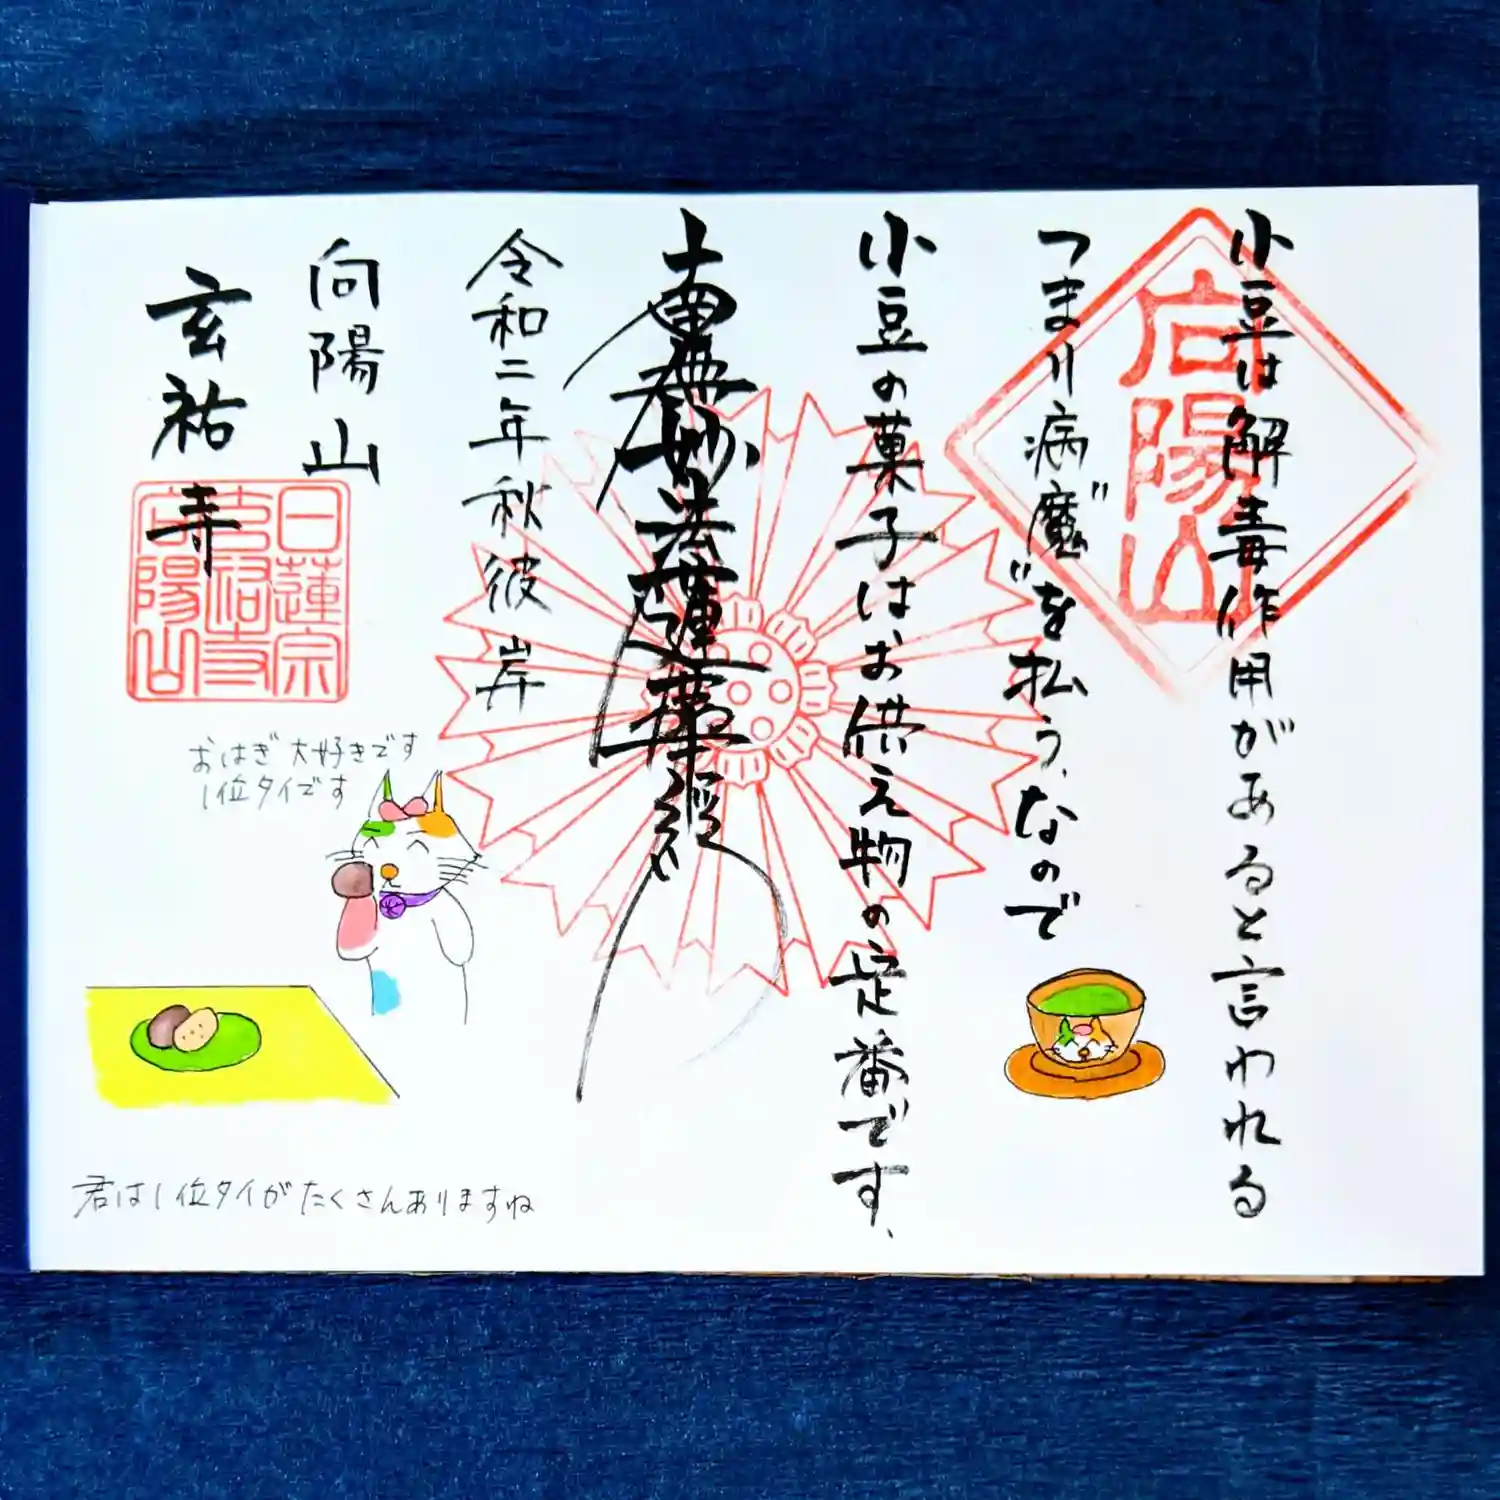 小豆は解毒作用があると言われる
つまり病"魔"を払う、なので
小豆の菓子はお供え物の定番です、
南無妙法蓮華経
令和二年秋彼岸
向陽山
玄祐寺
向陽山
日蓮宗
玄祐寺
向陽山
おはぎ大好きです
1位タイです
君は1位タイがたくさんありますね